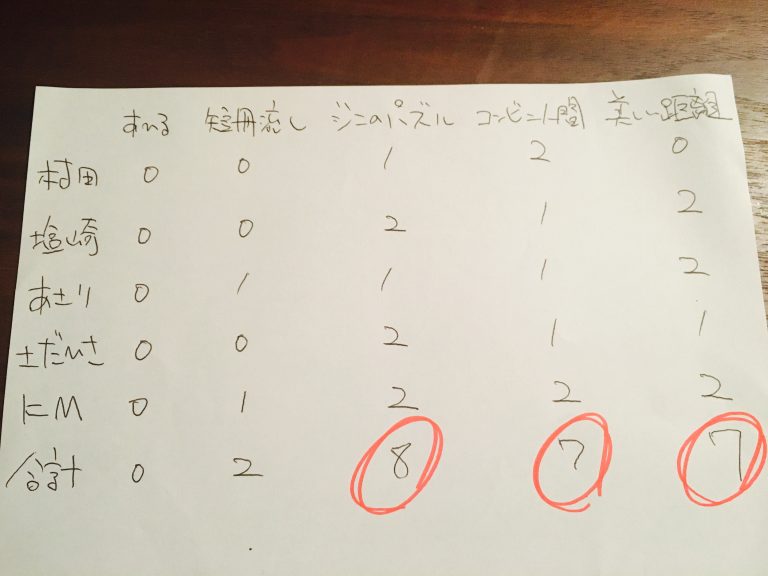 あひる 短冊流し ジニのパズル コンビニ人間 美しい距離
村田 0 0 1 2 0
塩崎 0 0 2 1 2
あさり 0 1 1 1 2
土だいさ 0 0 2 1 1
KM 0 1 2 2 2
合計 0 2 8 7 7